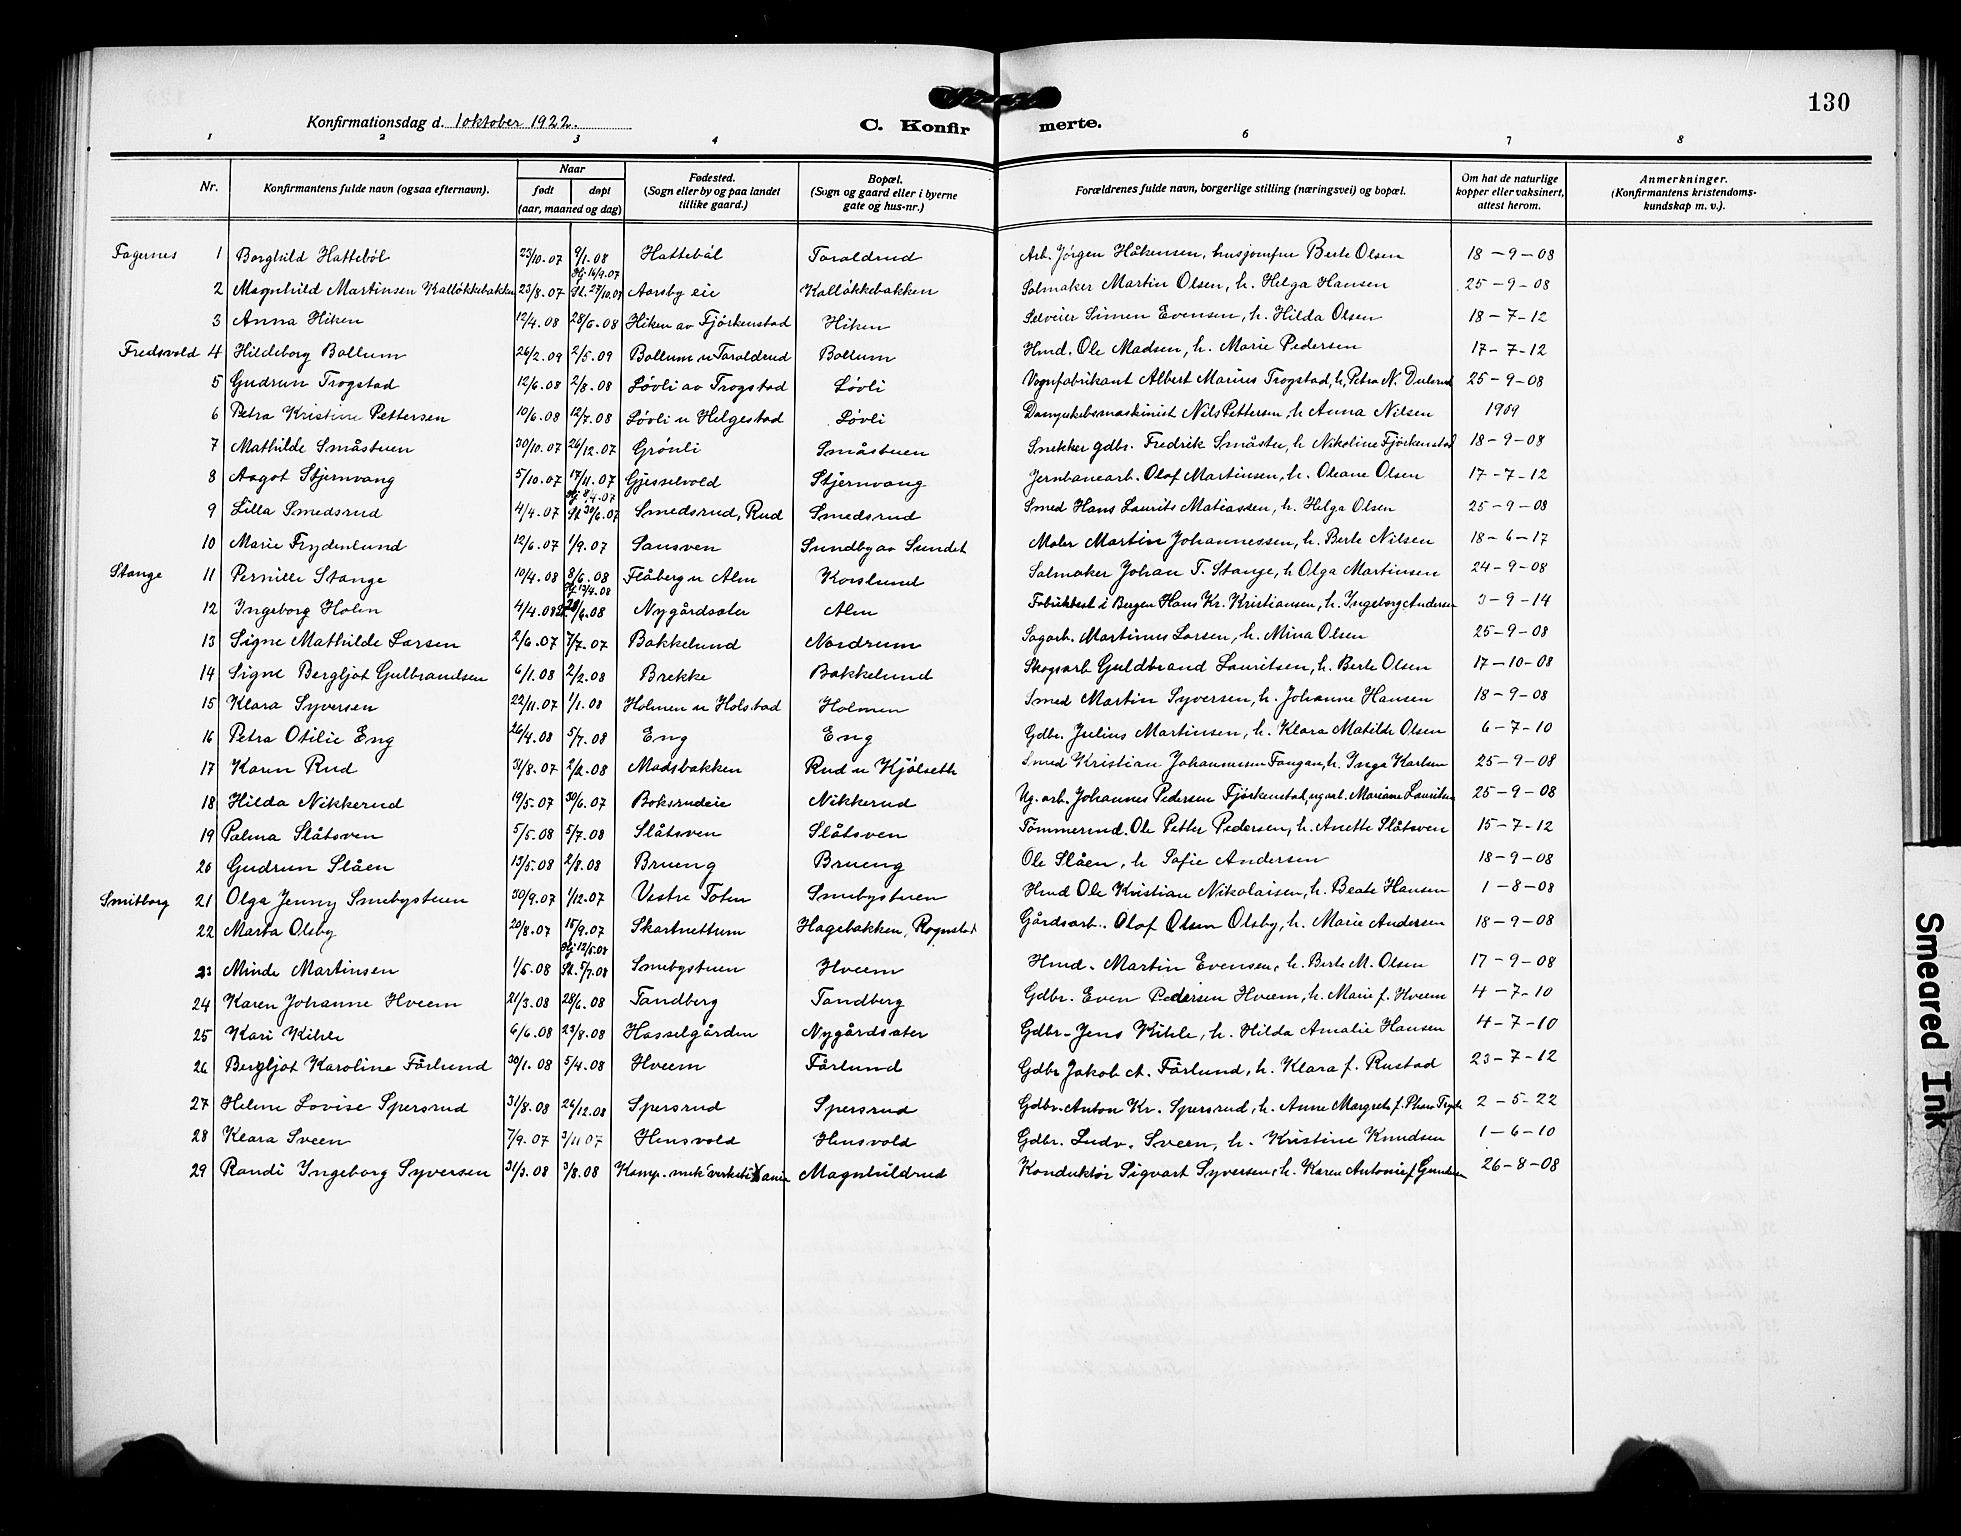 130
Konfirmationsdag d. 1 oktober 1922.
C. Konfir merte.
1 2 3 4 6 7 8
Nr. Konfirmantens fulde navn (ogsaa efternavn). Naar født døpt (aar, maaned og dag) Fødested. (Sogn eller by og paa landet tillike gaard.) Bopæl. (Sogn og gaard eller i byerne gate og hus-nr.) Forældrenes fulde navn, borgerlige stilling (næringsvei) og bopæl. Om hat de naturlige kopper eller vaksinert, attest herom. Anmerkninger. (Konfirmantens kristendoms-kundskap m. v.).
Fagernes 1 Borghild Hattebøl 23/10.07 9/1.08 Hattebøl Taraldrud Arb. Jørgen Håkensen, husjomfru Berte Olsen 18-9-08
2 Magnhild Martinsen Kalløkkebakken 23/8.07 Hj. 16/9.07 St. 27/10.07 Aarsby eie Kalløkkebakken Salmaker Martin Olsen, h. Helga Hansen 25-9-08
3 Anna Hiken 12/4.08 28/6.08 Hiken av Fjørkenstad Hiken Selveier Simen Evensen, h. Hilda Olsen 18-7-12
Fredsvold 4 Hildeborg Bollum 26/2.09 2/5.09 Bollum u Taraldrud Bollum Hmd. Ole Madsen, h. Marie Pedersen 17-7-12
5 Gudrun Trogstad 12/6.08 2/8.08 Løvli av Trogstad Løvli Vognfabrikant Albert Marius Trogstad, h. Petra N. Dulsrud 25-9-08
6 Petra Kristine Pettersen 10/6.08 12/7.08 Løvli u Helgestad Løvli Dampskibsmaskinist Nils Pettersen, h Anna Nilsen 1909
7 Mathilde Småstuen 30/10.07 26/12.07 Grønli Småstuen Snekker gdbr. Fredrik Småstu, h Nikoline Fjørkenstad 18-9-08
8 Aagot Stjernvang 5/10.07 17/11.07 Gjesselvold Stjernvang Jernbanearb. Olof Martinsen, h. Oleane Olsen 17-7-12
9 Lilla Smedsrud 4/4.07 Hj 8/4.07 St 30/6.07 Smedsrud, Rud Smedsrud Smed Hans Laurits Matiassen, h. Helga Olsen 25-9-08
10 Marie Frydenlund 12/6.07 1/9.07 Sansven Sundby av Sundet Maler Martin Johannessen, h. Berte Nilsen 18-6-17
Stange 11 Pernille Stange 10/4.08 8/6.08 Flåberg u Alm Korslund Salmaker Johan T. Stange, h Olga Martinsen 24-9-08
12 Ingeborg Holm 4/4.08 Hj 12/4.08 28/6.08 Nygårdsæter Alm Fabrikbest i Bergen Hans Kr. Kristiansen, h. Ingeborg Andersen 3-9-14
13 Signe Mathilde Larsen 2/6.07 7/7.07 Bakkelund Nordrum Sagarb. Martinus Larsen, h. Mina Olsen 25-9-08
14 Signe Bergljot Gulbrandsen 6/1.08 2/2.08 Brekke Bakkelund Skogsarb Guldbrand Lauritsen, h. Berte Olsen 17-10-08
15 Klara Syversen 22/11.07 1/1.08 Holmen u Holstad Holmen Smed Martin Syversen, h. Johanne Hansen 18-9-08
16 Petra Otilie Eng 26/4.08 5/7.08 Eng Eng Gdbr. Julius Martinsen, h. Klara Matilde Olsen 6-7-10
17 Karen Rud 31/8.07 2/2.08 Madsbakken Rud u Kjølseth Smed Kristian Johannessen Faugan, h. Inga Karlsen 25-9-08
18 Hilda Nikkerud 19/5.07 30/6.07 Boksrudeie Nikkerud Ug. arb. Johannes Pedersen Fjørkenstad, ug arb. Mariane Lauritsen 25-9-08
19 Palma Slåtsven 5/5.08 5/7.08 Slåtsven Slåtsven Tømmermd. Ole Petter Pedersen, h. Anette Slåtsven 15-7-12
20 Gudrun Slåen 13/5.08 2/8.08 Brueng Brueng Ole Slåen, h Sofie Andersen 18-9-08
Smitborg 21 Olga Jenny Smebystuen 30/9.07 1/12.07 Vestre Toten Smebystuen Hmd Ole Kristian Nikolaisen, h. Beate Hansen 1-8-08
22 Marta Olsby 20/8.07 15/9.07 Skartnettum Hagebakken, Rognstad Gårdsarb. Olof Olsen Olsby, h. Marie Andersen 18-9-08
23 Minde Martinsen 1/5.08 Hj 12/5.08 St. 5/7.08 Smebystuen Hveem Hmd. Martin Evensen, h. Berte M. Olsen 17-9-08
24 Karen Johanne Hveem 21/3.08 28/6.08 Tandberg Tandberg Gdbr. Even Pedersen Hveem, h. Marie f. Hveem 4-7-10
25 Kari Kihle 6/6.08 23/8.08 Hasselgården Nygårdsæter Gdbr. Jens Kihle, h. Hilda Amalie Hansen 4-7-10
26 Bergljot Karoline Fårlund 30/1.08 5/4.08 Hveem Fårlund Gdbr Jakob A. Fårlund, h. Klara f. Rustad 23-7-12
27 Helene Lovise Spersrud 31/8.08 26/12.08 Spersrud Spersrud Gdbr. Anton Kr. Spersrud, h. Anne Margrete f. 2-5-22
28 Klara Sveen 7/9.07 3/11 07 Hensvold Hensvold Gdbr. Ludv. Sveen, h. Kristine Knudsen 1-6-10
29 Randi Ingeborg Syversen 31/3.08 3/8.08 Kamp. mek verksted Magnhildrud Konduktør Sigvart Syversen, h. Karen Antonie f Gundersen 26-8-08
Smeared Ink